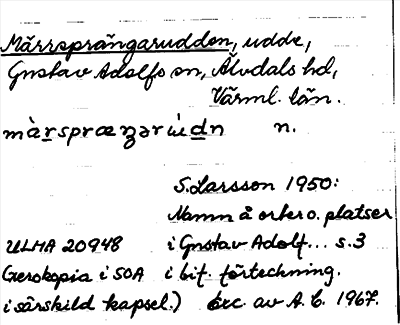 Märrsprängarudden, udde,
Gustav Adolfs sn, Älvdals hd,
Värml. län.
màr̲spræŋərù̀d̲n n.
S. Larsson 1950:
Namn å orter o. platser
ULMA 20948 i Gustav Adolf... s. 3
(Xerokopia i SOA i bif. förteckning.
i särskild kapsel.) Exc. av A. C. 1967.